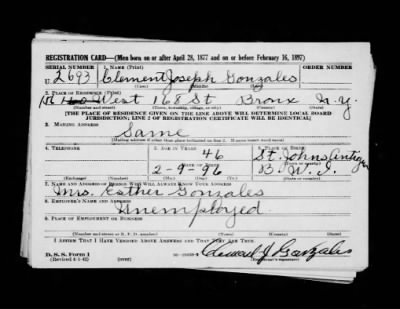 REGISTRATION CARD—(Men born on or after April 28, 1877 and on or before February 16, 1897)
SERIAL NUMBER 1. NAME (Print) ORDER NUMBER
U. 2693 Clement Joseph Gonzales
(First) (Middle) (Last)
2. PLACE OF RESIDENCE (Print)
160 West 168 St Bronx N.Y.
(Number and street) (Town, township, village, or city) (County) (State)
[THE PLACE OF RESIDENCE GIVEN ON THE LINE ABOVE WILL DETERMINE LOCAL BOARD
JURISDICTION; LINE 2 OF REGISTRATION CERTIFICATE WILL BE IDENTICAL]
3. MAILING ADDRESS
Same
[Mailing address if other than place indicated on line 2. If same insert word same]
4. TELEPHONE 5. AGE IN YEARS 6. PLACE OF BIRTH
46 St. Johns Antigua
DATE OF BIRTH
2-9-96 B.W.I.
(Exchange) (Number) (Mo.) (Day) (Yr.) (State or country)
7. NAME AND ADDRESS OF PERSON WHO WILL ALWAYS KNOW YOUR ADDRESS
Mrs. Esther Gonzales
8. EMPLOYER'S NAME AND ADDRESS
Unemployed
9. PLACE OF EMPLOYMENT OR BUSINESS
(Number and street or R. F. D. number) (Town) (County) (State)
I AFFIRM THAT I HAVE VERIFIED ABOVE ANSWERS AND THAT THEY ARE TRUE.
D. S. S. Form 1
(Revised 4-1-42) (over) Clement J Gonzales